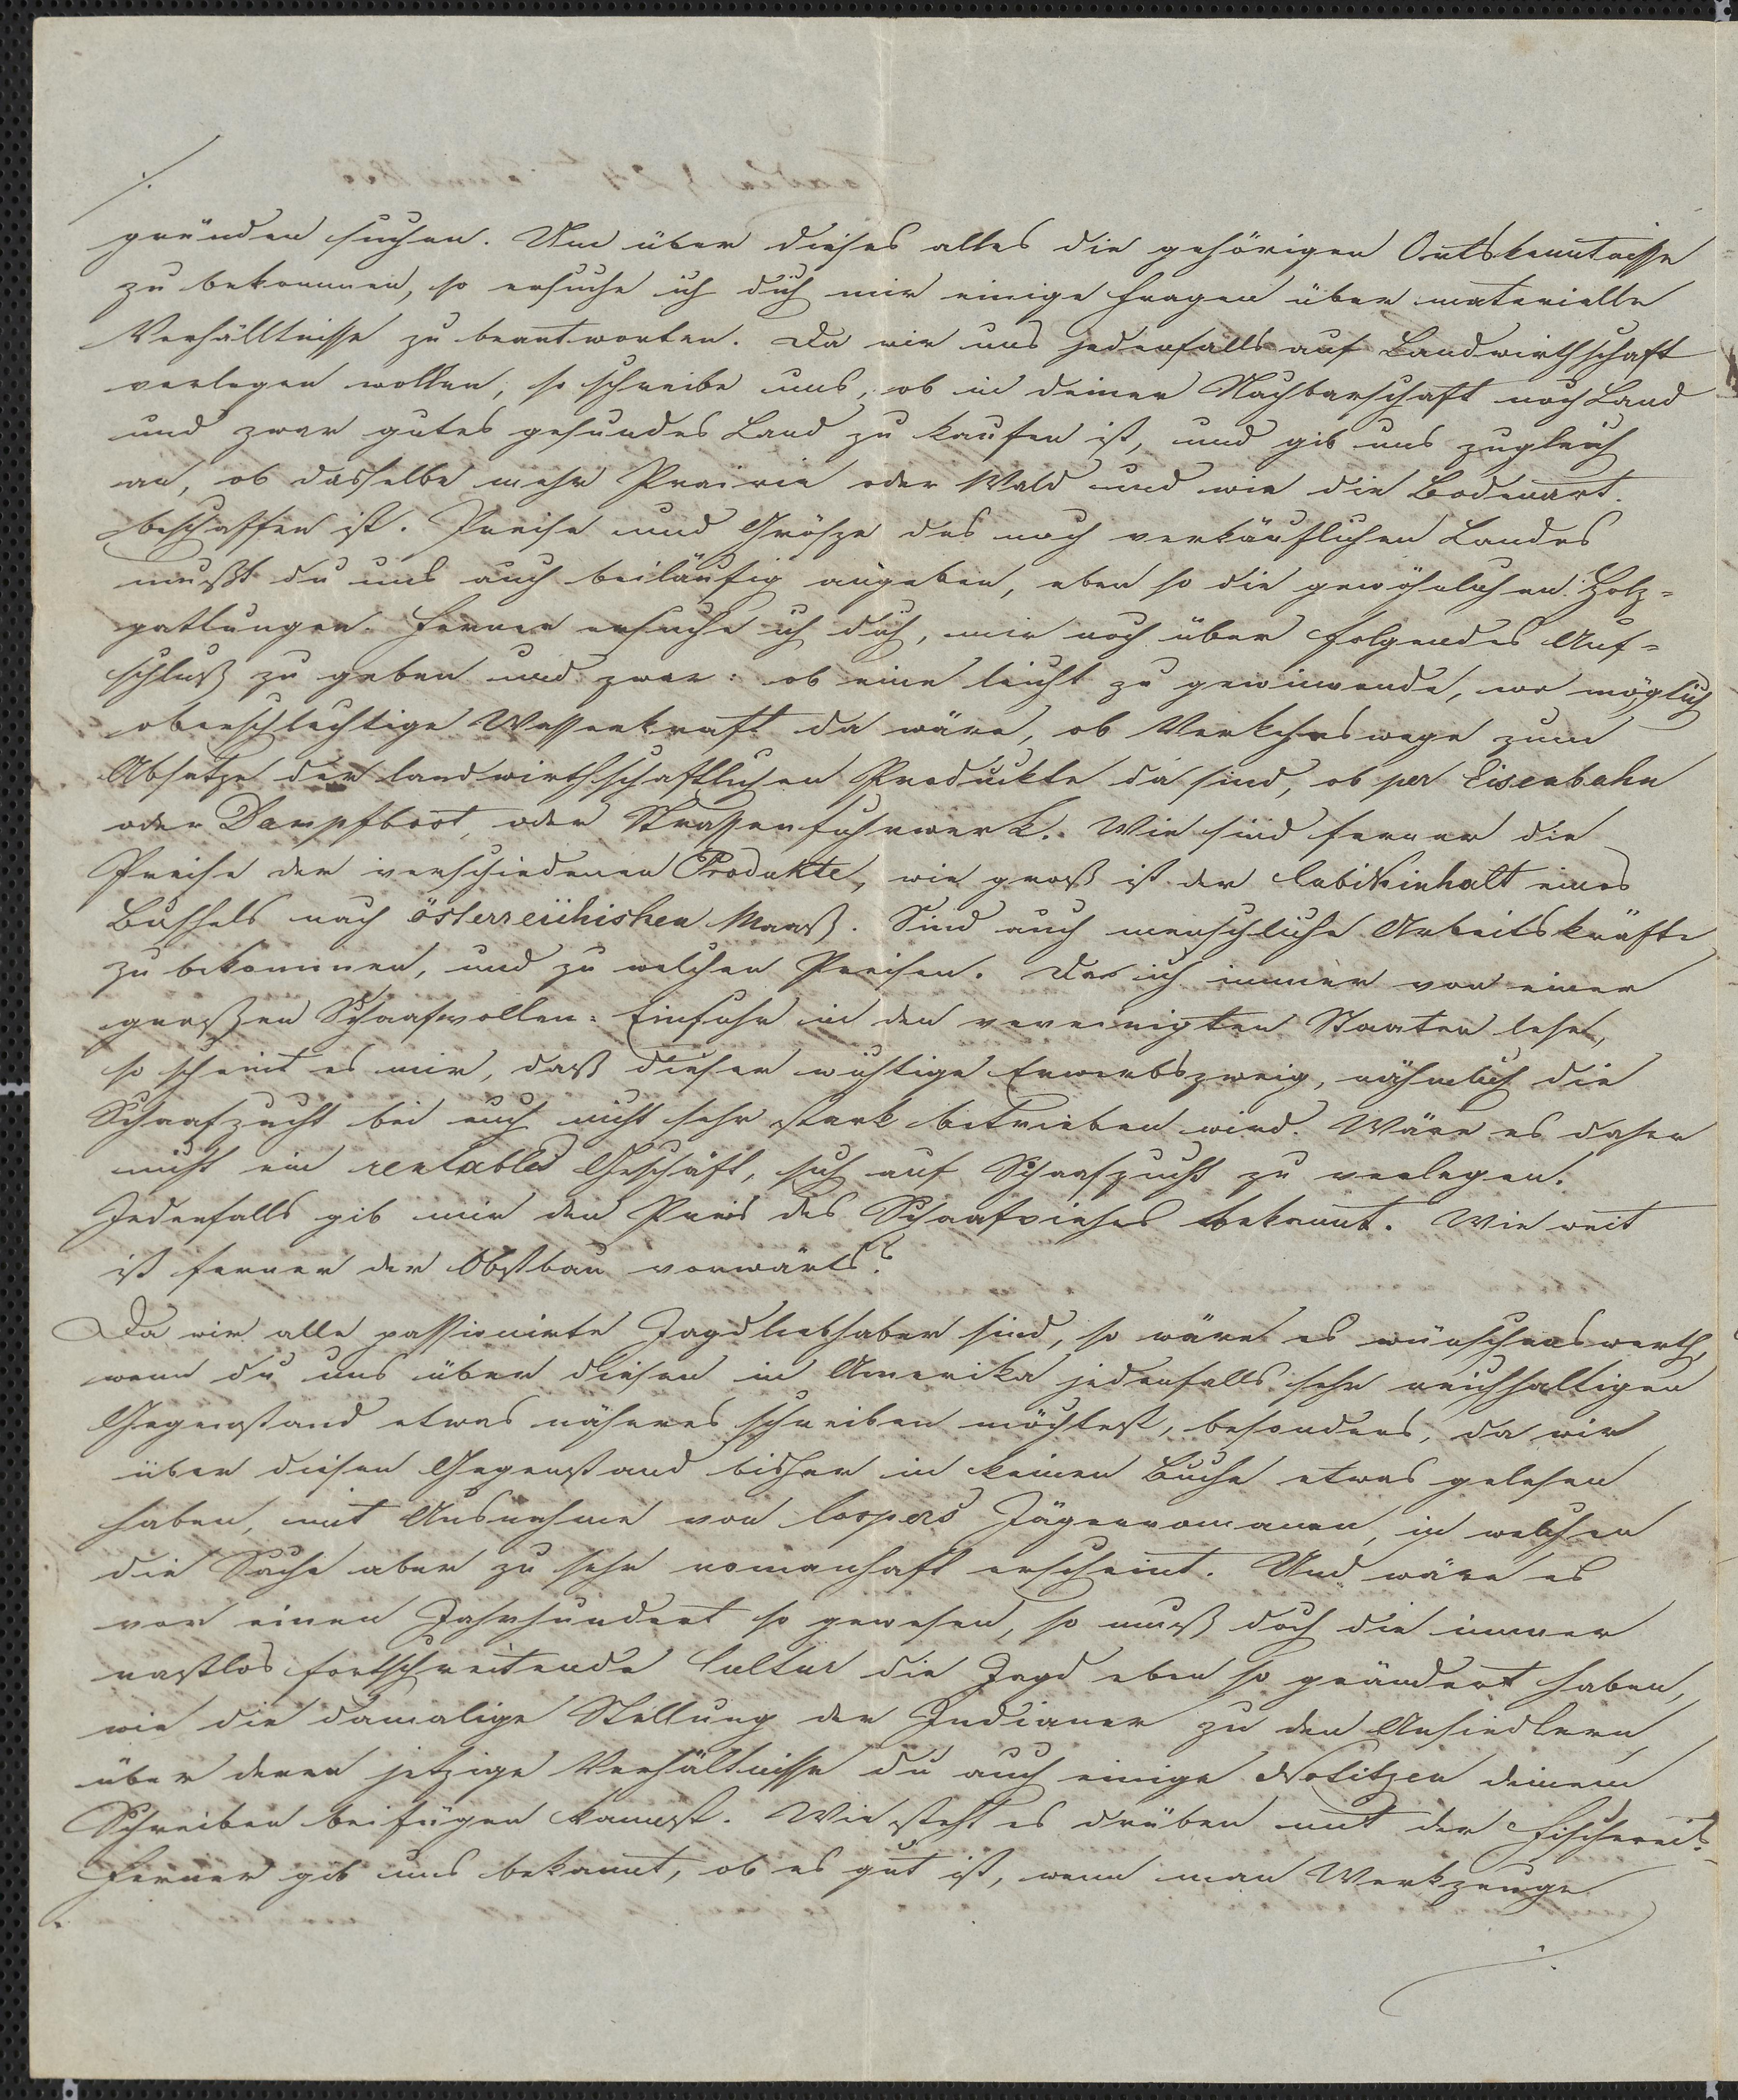 ./.
gründen suchen. Um über dieses alles die gehörigen Ortskenntnisse
zu bekommen, so ersuche ich dich mir einige Fragen über materielle
Verhälltnisse zu beantworten. Da wir uns jedenfalls auf Landwirthschaft
verlegen wollen, so schreibe uns, ob in deiner Nachbarschaft noch Land
und zwar gutes gesundes Land zu kaufen ist, und gib uns zugleich
an, ob dasselbe mehr Prairie oder Wald und wie die Bodenart
beschaffen ist. Preise und Grösze des noch verkäuflichen Landes
mußt du uns auch beiläufig angeben, eben so die gewöhnlichen Holz=
gattungen. Ferner ersuche ich dich, mir noch über folgendes Auf=
schluß zu geben und zwar: ob eine leicht zu gewinnende, wo möglich
oberschlechtige Wasserkraft da wäre, ob Verkehrswege zum
Absatze der landwirthschaftlichen Produckte da sind, ob per Eisenbahn
oder Dampfboot, oder Strassenfuhrwerk. Wie sind ferner die
Preise der verschiedenen Produkte, wie groß ist der Cubikinhalt eines
Bushels nach österreichishen Maaß. Sind auch menschliche Arbeitskräfte
zu bekommen, und zu welchen Preisen. Da ich immer von einer
großen Schaafwollen=Einfuhr in den vereinigten Staaten lese,
so scheint es mir, daß dieser wichtige Erwerbszweig, nähmlich die
Schaafzucht bei euch nicht sehr stark betrieben wird. Wäre es daher
nicht ein rentables Geschäft, sich auf Schaafzucht zu verlegen.
Jedenfalls gib mir den Preis des Schaafviehes bekannt. Wie weit
ist ferner der Obstbau vorwärts?
Da wir alle passionirte Jagdliebhaber sind, so wäre es wünschenswerth,
wenn du uns über diesen in Amerika jedenfalls sehr reichhaltigen
Gegenstand etwas näheres schreiben möchtest, besonders, da wir
über diesen Gegenstand bisher in keinen Buche etwas gelesen
haben, mit Ausnahme von Coopers Jägerromanen, in welchen
die Sache aber zu sehr romanhaft erscheint. Und wäre es
vor einen Jahrhundert so gewesen, so muß doch die immer
rastlos fortschreitende Cultur die Jagd eben so geändert haben,
wie die damalige Stellung der Indianer zu den Ansiedlern,
über deren jetzige Verhältnisse du auch einige Notitzen deinem
Schreiben beifügen kannst. Wie steht es drüben mit der Fischerei?
Ferner gib uns bekannt, ob es gut ist, wenn man Werkzeuge
./.